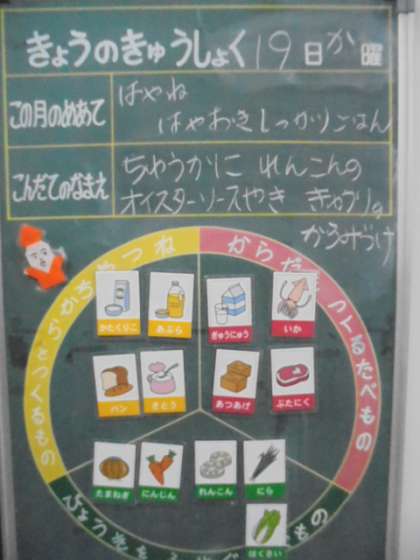 きょうのきゅうしょく 19 日 か 曜
この月のめあて
はやね
はやおき しっかりごはん
こんだてのなまえ
ちゅうかに れんこんの
オイスターソースやき きゅうりの
からみづけ
つくるたべもの
かたくりこ
あぶら
ぎゅうにゅう
いか
パン
さとう
あつあげ
ぶたにく
たまねぎ
にんじん
れんこん
にら
はくさい